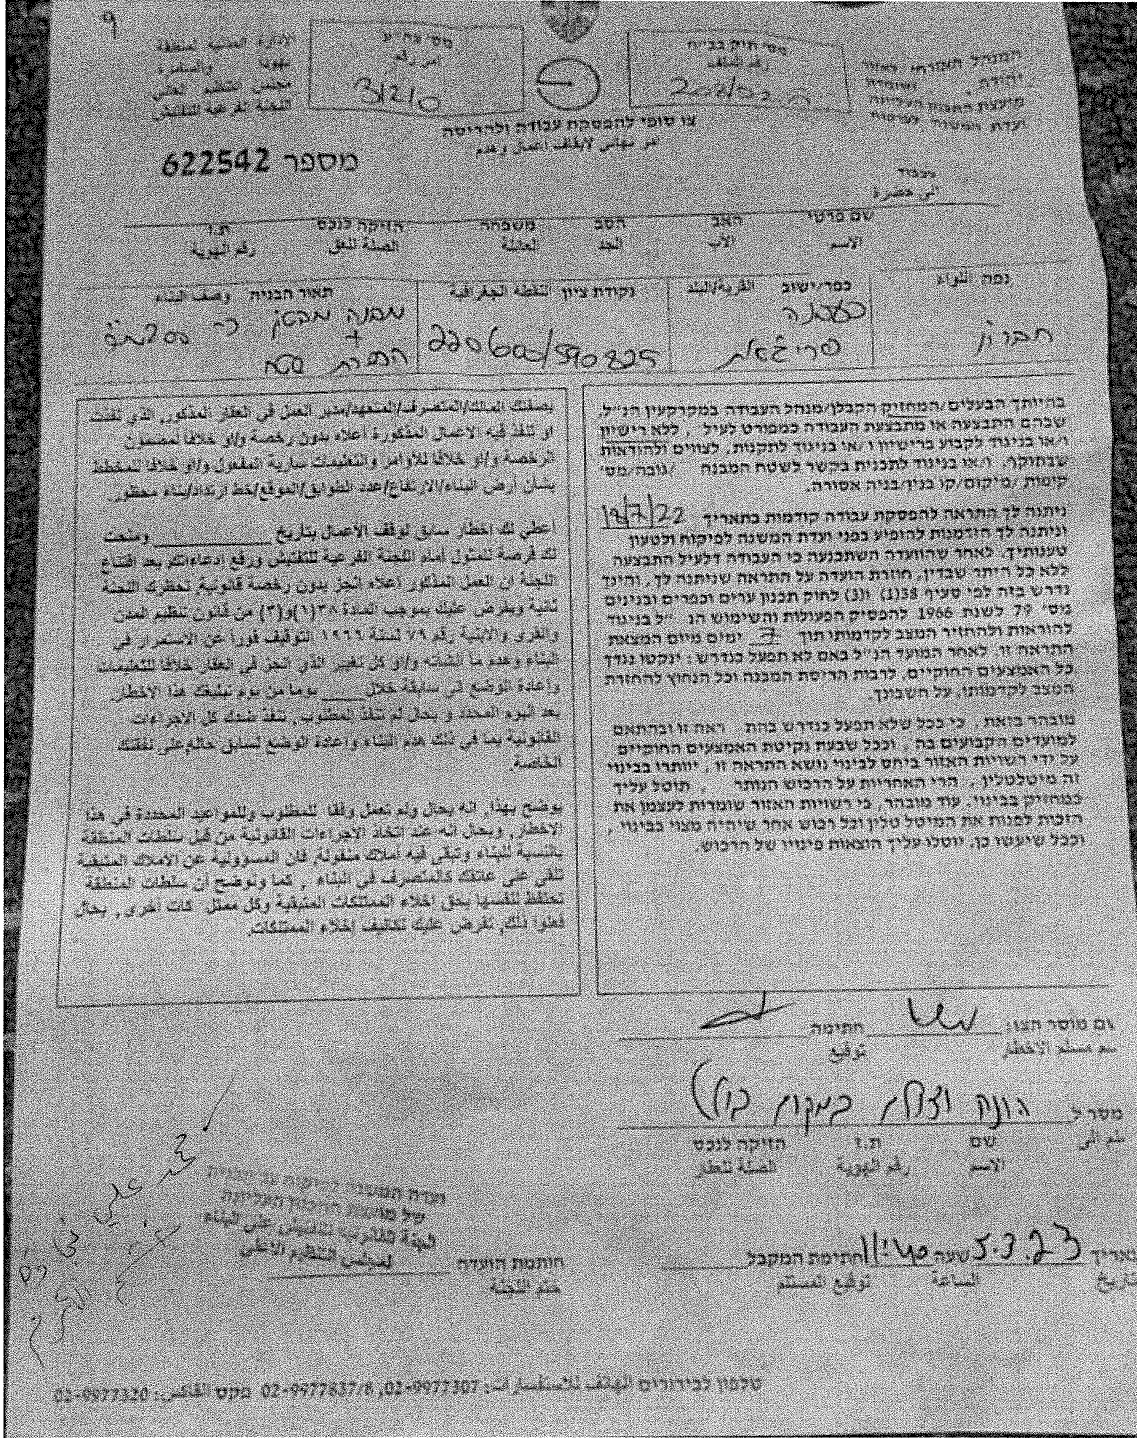 9
המנהל האזרחי לאזור
יהודה ושומרון
מועצת התכנון העליונה
ועדת המשנה לפיקוח
מס' תיק בב"ח
رقم الملف
מס' צה"ע
امر رقم
3/20
الادارة المدنية لمنطقة
يهودا والسامرة
مجلس التنظيم الاعلى
اللجنة الفرعية للتفتيش
צו סופי להפסקת עבודה ולהריסה
امر نهائي لايقاف اعمال وهدم
מספר 622542
לכבוד
الى حضرة
שם פרטי האב הסב משפחה הזיקה לנכס ת.ז
الاسم الاب الجد العائلة الصلة للعقار رقم الهوية
نفה اللواء
חברון
כפר/ישוב القرية/البلد
נקודת ציון النقطة الجغرافية
220600/590825
תאור הבניה وصف البناء
מבנה מבטון כ-200 מ"ר
+
הכשרת שטח
בהיותך הבעלים/המחזיק הקבלן/מנהל העבודה במקרקעין הנ"ל,
שבהם התבצעה או מתבצעת העבודה כמפורט לעיל, ללא רישיון
ו/או בניגוד לקבוע ברישיון ו/או בניגוד לתקנות, לצווים ולהוראות
שבתוקף, ו/או בניגוד לתכנית בקשר לשטח המבנה /גובה/מס'
קומות /מיקום/קו בנין/בניה אסורה.
ניתנה לך התראה להפסקת עבודה קודמות בתאריך 19/7/22
וניתנה לך הזדמנות להופיע בפני ועדת המשנה לפיקוח ולטעון
טענותיך. לאחר שהוועדה השתכנעה כי העבודה דלעיל התבצעה
ללא כל היתר שבדין, חוזרת הועדה על התראה שניתנה לך, והינך
נדרש בזה לפי סעיף 38(1) ו(3) לחוק תכנון ערים וכפרים ובנינים
מס' 79 לשנת 1966 להפסיק הפעולות והשימוש הנ"ל בניגוד
להוראות ולהחזיר המצב לקדמותו תוך 7 ימים מיום המצאת
התראה זו. לאחר המועד הנ"ל באם לא תפעל כנדרש: ינקטו נגדך
כל האמצעים החוקיים, לרבות הריסת המבנה וכל הנחוץ להחזרת
המצב לקדמותו, על חשבונך.
מובהר בזאת, כי ככל שלא תפעל כנדרש בהתראה זו ובהתאם
למועדים הקבועים בה, וככל שבעת נקיטת האמצעים החוקיים
על ידי רשויות האזור ביחס לבינוי נושא התראה זו, יוותרו בבינוי
זה מיטלטלין, הרי האחריות על הרכוש הנותר, תוטל עליך
כמחזיק בבינוי. עוד מובהר, כי רשויות האזור שומרות לעצמן את
הזכות לפנות את המיטלטלין וכל רכוש אחר שיהיה מצוי בבינוי,
וככל שיעשו כן, יוטלו עליך הוצאות פינויו של הרכוש.
بصفتك المالك/المتصرف/المتعهد/مدير العمل في العقار المذكور, الذي نفذت
او تنفذ فيه الاعمال المذكورة اعلاه بدون رخصة و/او خلافا لمضمون
الرخصة و/او خلافا للاوامر والتعليمات سارية المفعول و/او خلافا للمخطط
بشأن ارض البناء/الارتفاع/عدد الطوابق/الموقع/خط ارتداد/بناء محظور.
اعطي لك اخطار سابق لوقف الاعمال بتاريخ ________ ومنحت
لك فرصة للمثول أمام اللجنة الفرعية للتفتيش ورفع ادعاءاتكم بعد اقتناع
اللجنة ان العمل المذكور اعلاه انجز بدون رخصة قانونية, تحظرك اللجنة
ثانية ويفرض عليك بموجب المادة ٣٨(١)و(٣) من قانون تنظيم المدن
والقرى والابنية رقم ٧٩ لسنة ١٩٦٦ التوقيف فورا عن الاستمرار في
البناء وهدم ما انشأته و/او كل تغيير الذي انجز في العقار خلافا للتعليمات
واعادة الوضع الى سابقه خلال ____ يوما من يوم تبليغك هذا الاخطار.
بعد اليوم المحدد و بحال لم تنفذ المطلوب, تنفذ ضدك كل الاجراءات
القانونية بما في ذلك هدم البناء واعادة الوضع لسابق حاله,على نفقتك
الخاصة.
يوضح بهذا, انه بحال ولم تعمل وفقا للمطلوب وللمواعيد المحددة في هذا
الاخطار, وبحال انه عند اتخاذ الاجراءات القانونية من قبل سلطات المنطقة
بالنسبة للبناء وتبقى فيه املاك منقولة, فان المسؤولية عن الاملاك المتبقية
تلقى على عاتقك كالمتصرف في البناء, كما ونوضح ان سلطات المنطقة
تحتفظ لنفسها بحق اخلاء الممتلكات المتبقية وكل ممتلكات اخرى, بحال
فعلوا ذلك, تفرض عليك تكاليف اخلاء الممتلكات.
שם מוסר הצו: חתימה
اسم مسلم الاخطار توقيع
נמסר ל הונח וצולם במקום
سلم الى
שם ת.ז הזיקה לנכס
الاسم رقم الهوية الصلة للعقار
תאריך 5.3.23 שעה 11:40 חתימת המקבל
تاريخ الساعة توقيع المستلم
ועדת המשנה לפיקוח על הבניה
של מועצת התכנון העליונה
اللجنة الفرعية للتفتيش على البناء
لمجلس التنظيم الاعلى
חותמת הועדה
ختم اللجنة
טלפון לבירורים الهاتف للاستفسارات: 02-9977307, 02-9977837/8 פקס الفاكس: 02-9977320